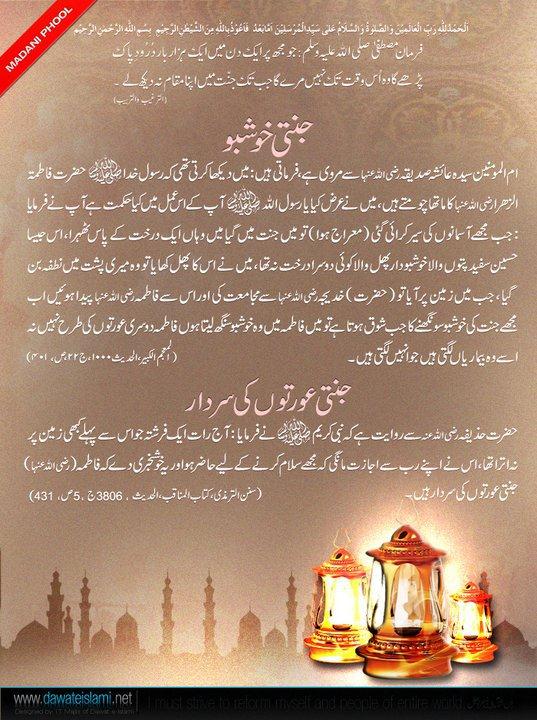 MADANI PHOOL
اَلْحَمْدُ لِلّٰهِ رَبِّ الْعَالَمِيْنَ وَالصَّلٰوةُ وَالسَّلَامُ عَلٰى سَيِّدِ الْمُرْسَلِيْنَ اَمَّا بَعْدُ فَاَعُوْذُ بِاللّٰهِ مِنَ الشَّيْطٰنِ الرَّجِيْمِ بِسْمِ اللّٰهِ الرَّحْمٰنِ الرَّحِيْمِ
فرمانِ مصطفٰی صلی اللہ علیہ وسلم : جو مجھ پر ایک دن میں ایک ہزار بار دُرُود پاک
پڑھے گا وہ اُس وقت تک نہیں مرے گا جب تک جنّت میں اپنا مقام نہ دیکھ لے۔
(الترغیب والترہیب)
جنتی خوشبو
ام المومنین سیدہ عائشہ صدیقہ رضی اللہ عنہا سے مروی ہے، فرماتی ہیں: میں دیکھا کرتی تھی کہ رسولِ خدا ﷺ حضرت فاطمۃ
الزھرا رضی اللہ عنہا کا ماتھا چومتے ہیں، میں نے عرض کیا یا رسول اللہ ﷺ آپ کے اس عمل میں کیا حکمت ہے آپ نے فرمایا
: جب مجھے آسمانوں کی سیر کرائی گئی (معراج ہوا) تو میں جنت میں گیا میں وہاں ایک درخت کے پاس ٹھہرا، اس جیسا
حسین سفید پتوں والا خوشبودار پھل والا کوئی دوسرا درخت نہ تھا، میں نے اس کا پھل کھایا تو وہ میری پشت میں نطفہ بن
گیا، جب میں زمین پر آیا تو (حضرت) خدیجہ رضی اللہ عنہا سے مجامعت کی اور اس سے فاطمہ رضی اللہ عنہا پیدا ہوئیں اب
مجھے جنت کی خوشبو سونگھنے کا جب شوق ہوتا ہے تو میں فاطمہ میں وہ خوشبو سونگھ لیتا ہوں فاطمہ دوسری عورتوں کی طرح نہیں نہ
اسے وہ بیماریاں لگتی ہیں جو انہیں لگتی ہیں۔ (المعجم الکبیر، الحدیث ۱۰۰۰، ج ۲۲، ص، ۴۰۱)
جنتی عورتوں کی سردار
حضرت حذیفہ رضی اللہ عنہ سے روایت ہے کہ نبی کریم ﷺ نے فرمایا: آج رات ایک فرشتہ جو اس سے پہلے کبھی زمین پر
نہ اترا تھا، اس نے اپنے رب سے اجازت مانگی کہ مجھے سلام کرنے کے لیے حاضر ہو اور یہ خوشخبری دے کہ فاطمہ (رضی اللہ عنہا)
جنتی عورتوں کی سردار ہیں۔ (سنن الترمذی، کتاب المناقب، الحدیث ، 3806 ج ، 5 ص، 431)
www.dawateislami.net
Designed by: I.T Majlis of Dawat-e-Islami
I must strive to reform myself and people of entire world.